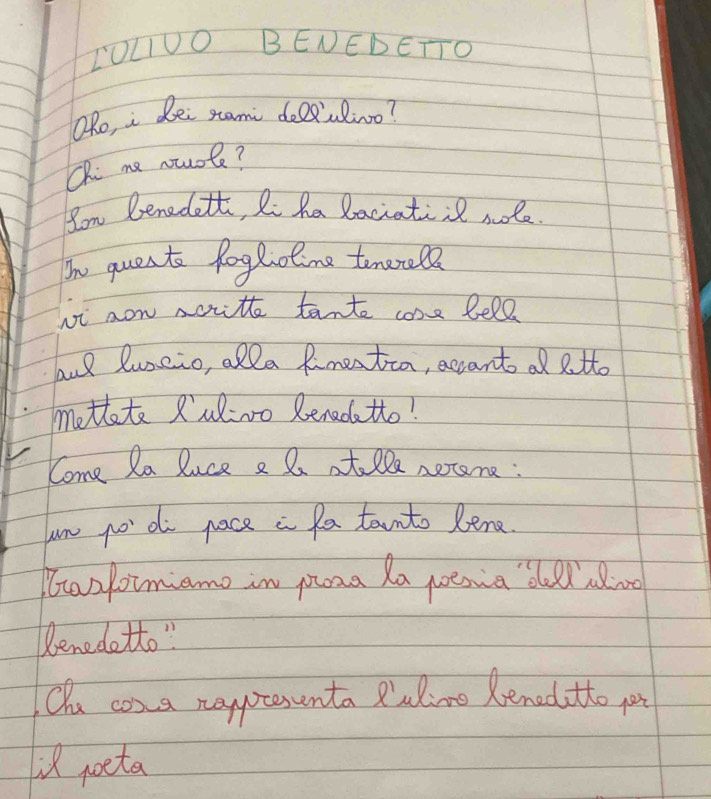 L'OLIVO BENEDETTO
Oho, i bei rami dell'ulivo?
Chi ne vuole?
Son benedetti, li ha baciati il sole.
In queste foglioline tenerelle
vi son scritte tante cose belle
sul luscio, alla finestra, accanto al letto
mettete l'ulivo benedetto!
Come la luce e le stelle serene:
un po' di pace ci fa tanto bene.
Trasformiamo in prosa la poesia "dell'ulivo
benedetto"
Che cosa rappresenta l'ulivo beneditto per
il poeta